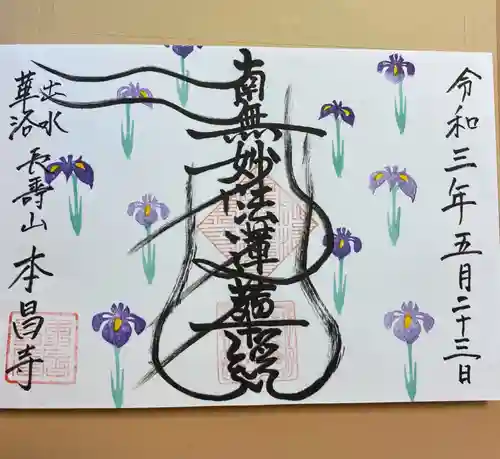 令和三年五月二十三日
南無妙法蓮華経
華洛
出水
長壽山
本昌寺